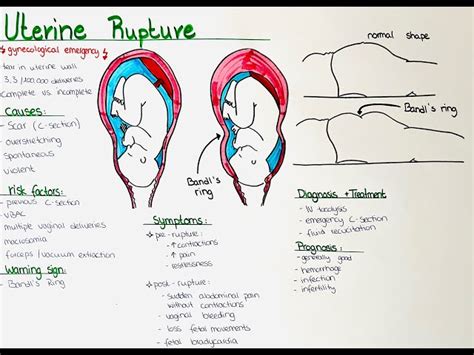 Uterine Rupture
gynecological emergency
tear in uterine wall
3,3/100.000 deliveries
complete vs. incomplete
Causes:
- Scar (C-section)
- overstretching
- spontaneous
- violent
risk factors:
- previous C-section
- VBAC
- multiple vaginal deliveries
- macrosomia
- forceps/vacuum extraction
Warning sign:
- Bandl's Ring
Bandl's
ring
Symptoms:
pre-rupture:
- ↑ contractions
- ↑ pain
- restlessness
post-rupture:
- sudden abdominal pain
without contractions
- vaginal bleeding
- loss fetal movements
- fetal bradycardia
normal shape
Bandl's ring
Diagnosis + Treatment
- IV tocolysis
- emergency C-section
- fluid recucitation
Prognosis:
- generally good
- hemorrhage
- infection
- infertility